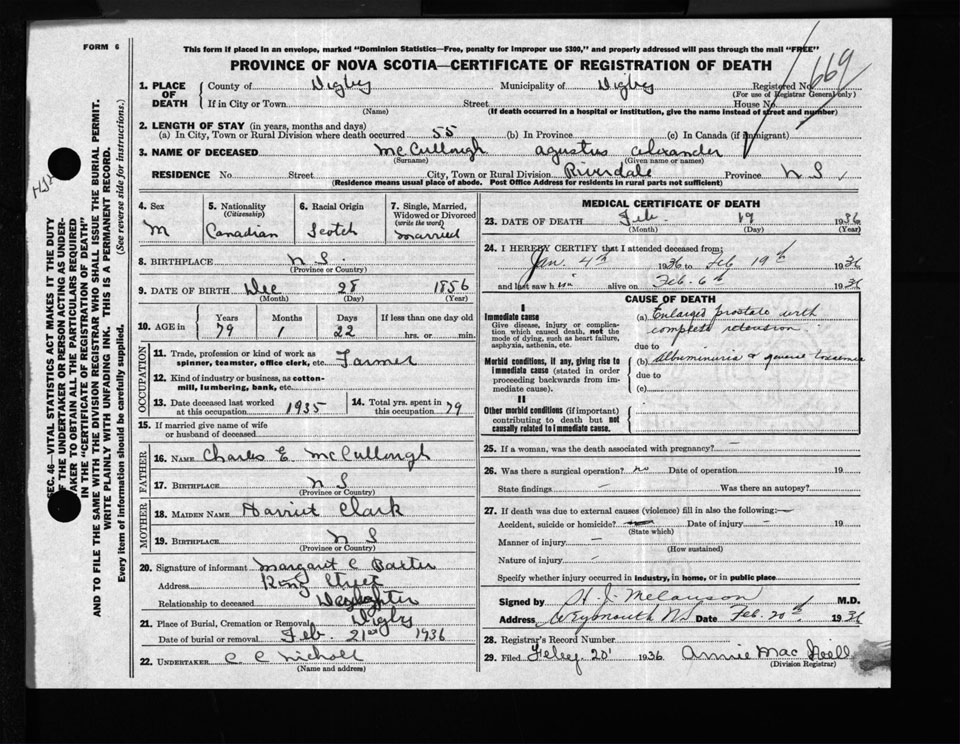 FORM 6
This form if placed in an envelope, marked "Dominion Statistics—Free, penalty for improper use $300," and properly addressed will pass through the mail "FREE"
PROVINCE OF NOVA SCOTIA—CERTIFICATE OF REGISTRATION OF DEATH
1669
1. PLACE OF DEATH
County of Digby Municipality of Digby Registered No.
(For use of Registrar General only)
If in City or Town Street House No.
(Name) (If death occurred in a hospital or institution, give the name instead of street and number)
2. LENGTH OF STAY (in years, months and days)
(a) In City, Town or Rural Division where death occurred 55 (b) In Province (c) In Canada (if immigrant)
3. NAME OF DECEASED McCullough agustus alexander
(Surname) (Given name or names)
RESIDENCE No. Street City, Town or Rural Division Riverdale Province N S
(Residence means usual place of abode. Post Office Address for residents in rural parts not sufficient)
4. Sex M
5. Nationality (Citizenship) Canadian
6. Racial Origin Scotch
7. Single, Married, Widowed or Divorced (write the word) married
8. BIRTHPLACE N S.
(Province or Country)
9. DATE OF BIRTH Dec 28 1856
(Month) (Day) (Year)
10. AGE in Years 79 Months 1 Days 22 If less than one day old hrs. or min.
OCCUPATION
11. Trade, profession or kind of work as spinner, teamster, office clerk, etc. Farmer
12. Kind of industry or business, as cotton-mill, lumbering, bank, etc.
13. Date deceased last worked at this occupation 1935
14. Total yrs. spent in this occupation 79
15. If married give name of wife or husband of deceased
FATHER
16. NAME Charles E McCullough
17. BIRTHPLACE N S
(Province or Country)
MOTHER
18. MAIDEN NAME Harriet Clark
19. BIRTHPLACE N S
(Province or Country)
20. Signature of informant Margaret C Baxter
Address King Street
Relationship to deceased Daughter
21. Place of Burial, Cremation or Removal Digby
Date of burial or removal Feb. 21st 1936
22. UNDERTAKER C C Nicholl
(Name and address)
MEDICAL CERTIFICATE OF DEATH
23. DATE OF DEATH Feb. 19 1936
(Month) (Day) (Year)
24. I HEREBY CERTIFY that I attended deceased from:
Jan. 4th 1936 to Feb 19th 1936
and last saw him alive on Feb. 6th 1936
CAUSE OF DEATH
I
Immediate cause
Give disease, injury or complication which caused death, not the mode of dying, such as heart failure, asphyxia, asthenia, etc.
(a) Enlarged prostate with complete retension
due to
Morbid conditions, if any, giving rise to immediate cause (stated in order proceeding backwards from immediate cause).
(b) Albuminuria & general toxaemia
due to
(c)
II
Other morbid conditions (if important) contributing to death but not causally related to immediate cause.
25. If a woman, was the death associated with pregnancy? —
26. Was there a surgical operation? no Date of operation 19
State findings — Was there an autopsy?
27. If death was due to external causes (violence) fill in also the following:—
Accident, suicide or homicide? Date of injury — 19
(State which)
Manner of injury —
(How sustained)
Nature of injury —
Specify whether injury occurred in industry, in home, or in public place
Signed by M.D.
Address Weymouth N.S Date Feb. 20th 1936
28. Registrar's Record Number
29. Filed Feby. 20' 1936 Annie Mac Neill
(Division Registrar)
SEC. 46—VITAL STATISTICS ACT MAKES IT THE DUTY
OF THE UNDERTAKER OR PERSON ACTING AS UNDER-
TAKER TO OBTAIN ALL THE PARTICULARS REQUIRED
IN THE "CERTIFICATE OF REGISTRATION OF DEATH"
AND TO FILE THE SAME WITH THE DIVISION REGISTRAR WHO SHALL ISSUE THE BURIAL PERMIT.
WRITE PLAINLY WITH UNFADING INK. THIS IS A PERMANENT RECORD.
Every item of information should be carefully supplied. (See reverse side for instructions.)